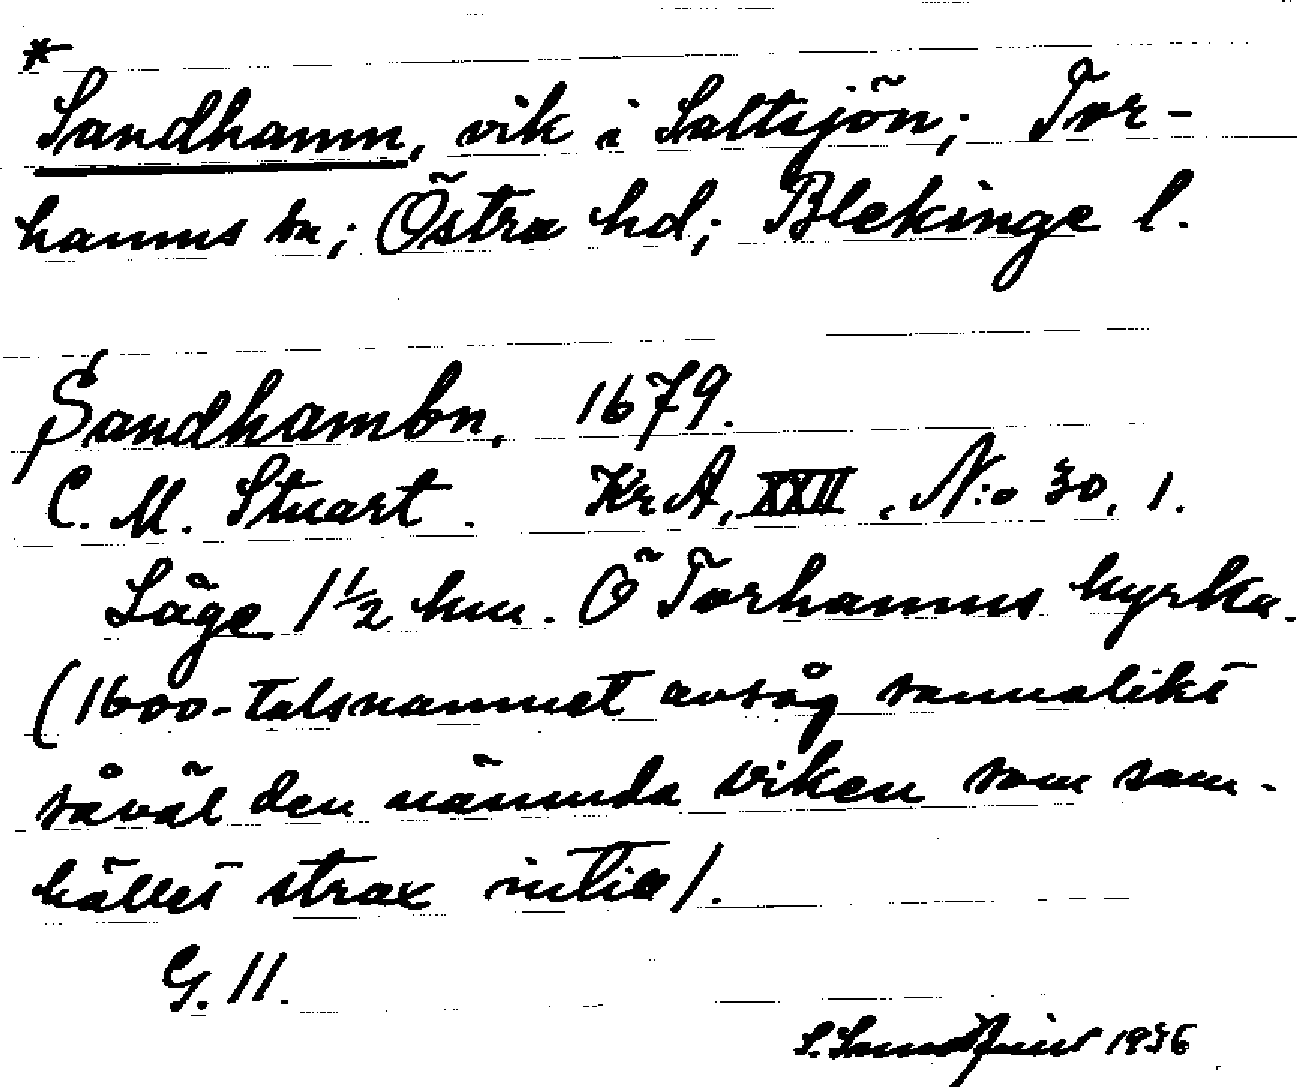 *
Sandhamn, vik i Saltsjön; Tor-
hamns sn; Östra hd; Blekinge l.
Sandhambn, 1679.
C. M. Stuart. Kr A, XXII, N:o 30, 1.
Läge 1½ km. Ö Torhamns kyrka.
(1600-talsnamnet avsåg sannolikt
såväl den nämnda viken som sam-
hället strax intill).
G. 11.
S. 1936